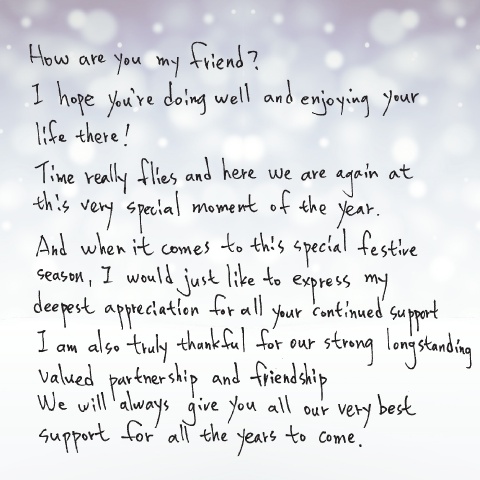 How are you my friend?
I hope you're doing well and enjoying your
life there!
Time really flies and here we are again at
this very special moment of the year.
And when it comes to this special festive
season, I would just like to express my
deepest appreciation for all your continued support
I am also truly thankful for our strong longstanding
valued partnership and friendship
We will always give you all our very best
support for all the years to come.